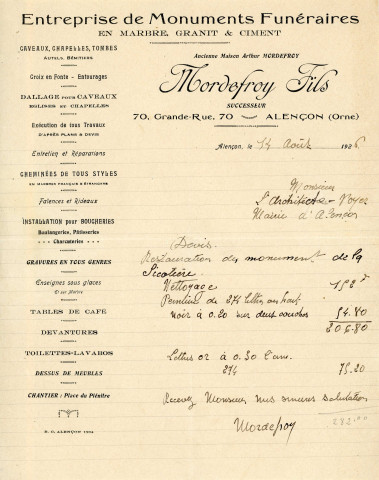 Entreprise de Monuments Funéraires
EN MARBRE, GRANIT & CIMENT
CAVEAUX, CHAPELLES, TOMBES
AUTELS, BÉNITIERS
Croix en Fonte - Entourages
DALLAGE POUR CAVEAUX
EGLISES ET CHAPELLES
Exécution de tous Travaux
D'APRÈS PLANS & DEVIS
Entretien et Réparations
CHEMINÉES DE TOUS STYLES
EN MARBRE FRANÇAIS & ÉTRANGERS
Faïences et Rideaux
INSTALLATION POUR BOUCHERIES
Boulangeries, Pâtisseries
Charcuteries
GRAVURES EN TOUS GENRES
Enseignes sous glaces
Et sur Marbre
TABLES DE CAFÉ
DEVANTURES
TOILETTES-LAVABOS
DESSUS DE MEUBLES
CHANTIER : Place du Plénitre
R. C. ALENÇON 1204
Ancienne Maison Arthur MORDEFROY
Mordefroy Fils
SUCCESSEUR
70, Grande-Rue, 70 ALENÇON (Orne)
Alençon, le 14 Août 1926
Monsieur
l'Architecte-Voyer
Mairie d'Alençon
Devis
Restauration du monument de la
Sicotière.
Nettoyage 152 f
Peinture de 274 lettres en
noir à 0.20 sur deux couches 54.80
206.80
Lettres 02 à 0.30 l'une.
274 75.20
Recevez Monsieur nos sincères salutations
Mordefroy
282.00